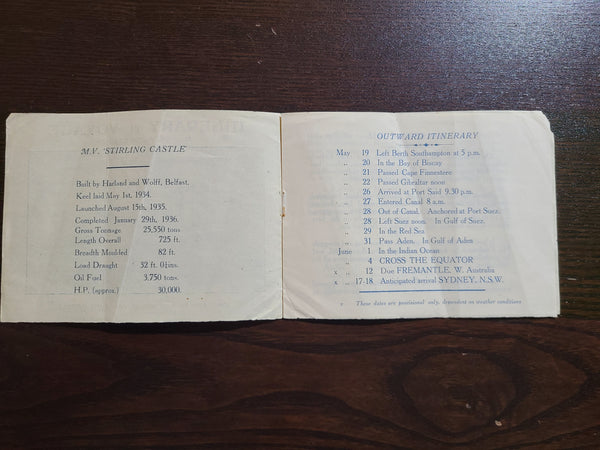 M.V. 'STIRLING CASTLE'
Built by Harland and Wolff, Belfast.
Keel laid May 1st, 1934.
Launched August 15th, 1935.
Completed January 29th, 1936.
Gross Tonnage 25,550 tons
Length Overall 725 ft.
Breadth Moulded 82 ft.
Load Draught 32 ft. 0¾ins.
Oil Fuel 3,750 tons.
H.P. (approx.) 30,000.
OUTWARD ITINERARY
May 19 Left Berth Southampton at 5 p.m.
,, 20 In the Bay of Biscay
,, 21 Passed Cape Finnestere
,, 22 Passed Gibraltar noon
,, 26 Arrived at Port Said 9.30 p.m.
,, 27 Entered Canal 8 a.m.
,, 28 Out of Canal. Anchored at Port Suez.
,, 28 Left Suez noon. In Gulf of Suez.
,, 29 In the Red Sea
,, 31 Pass Aden. In Gulf of Aden
June 1 In the Indian Ocean
,, 4 CROSS THE EQUATOR
x ,, 12 Due FREMANTLE, W. Australia
x ,, 17-18 Anticipated arrival SYDNEY, N.S.W.
x These dates are provisional only, dependent on weather conditions